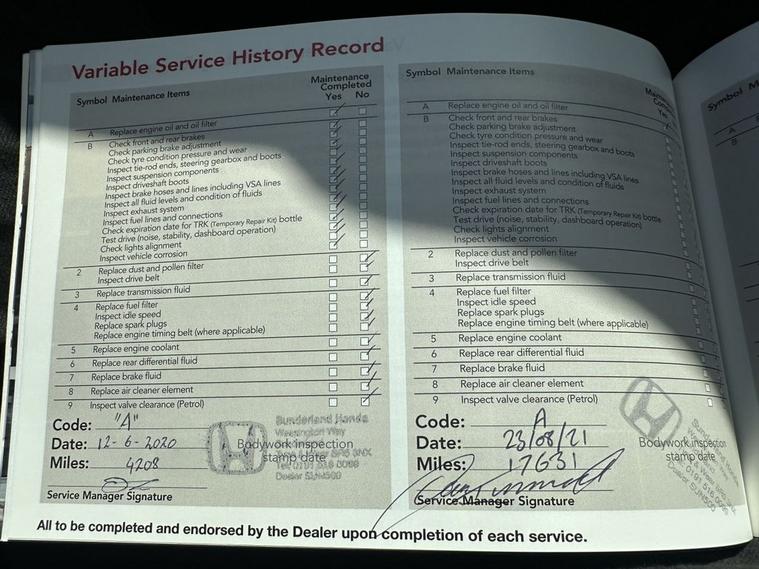 Variable Service History Record
Symbol Maintenance Items
Maintenance
Completed
Yes No
A Replace engine oil and oil filter
B Check front and rear brakes
Check parking brake adjustment
Check tyre condition pressure and wear
Inspect tie-rod ends, steering gearbox and boots
Inspect suspension components
Inspect driveshaft boots
Inspect brake hoses and lines including VSA lines
Inspect all fluid levels and condition of fluids
Inspect exhaust system
Inspect fuel lines and connections
Check expiration date for TRK (Temporary Repair Kit) bottle
Test drive (noise, stability, dashboard operation)
Check lights alignment
Inspect vehicle corrosion
2 Replace dust and pollen filter
Inspect drive belt
3 Replace transmission fluid
4 Replace fuel filter
Inspect idle speed
Replace spark plugs
Replace engine timing belt (where applicable)
5 Replace engine coolant
6 Replace rear differential fluid
7 Replace brake fluid
8 Replace air cleaner element
9 Inspect valve clearance (Petrol)
Code: "A"
Date: 12-6-2020
Miles: 4208
Service Manager Signature
Sunderland Honda
Bodywork inspection
stamp date
Dealer SUN500
Symbol Maintenance Items
A Replace engine oil and oil filter
B Check front and rear brakes
Check parking brake adjustment
Check tyre condition pressure and wear
Inspect tie-rod ends, steering gearbox and boots
Inspect suspension components
Inspect driveshaft boots
Inspect brake hoses and lines including VSA lines
Inspect all fluid levels and condition of fluids
Inspect exhaust system
Inspect fuel lines and connections
Check expiration date for TRK (Temporary Repair Kit) bottle
Test drive (noise, stability, dashboard operation)
Check lights alignment
Inspect vehicle corrosion
2 Replace dust and pollen filter
Inspect drive belt
3 Replace transmission fluid
4 Replace fuel filter
Inspect idle speed
Replace spark plugs
Replace engine timing belt (where applicable)
5 Replace engine coolant
6 Replace rear differential fluid
7 Replace brake fluid
8 Replace air cleaner element
9 Inspect valve clearance (Petrol)
Code: A
Date: 23/08/21
Miles: 17631
Service Manager Signature
Bodywork inspection
stamp date
All to be completed and endorsed by the Dealer upon completion of each service.